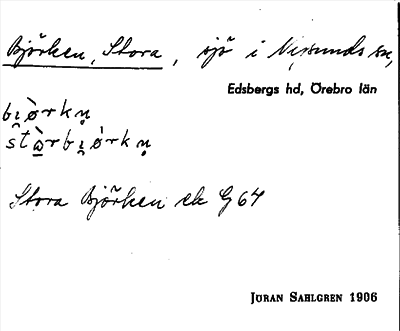 Björken, Stora, sjö i Nysunds sn,
Edsbergs hd, Örebro län
bi̯ö̀rkn̥
stὼ̲rbi̯ö̀rkn̥
Stora Björken ek G 64
JÖRAN SAHLGREN 1906